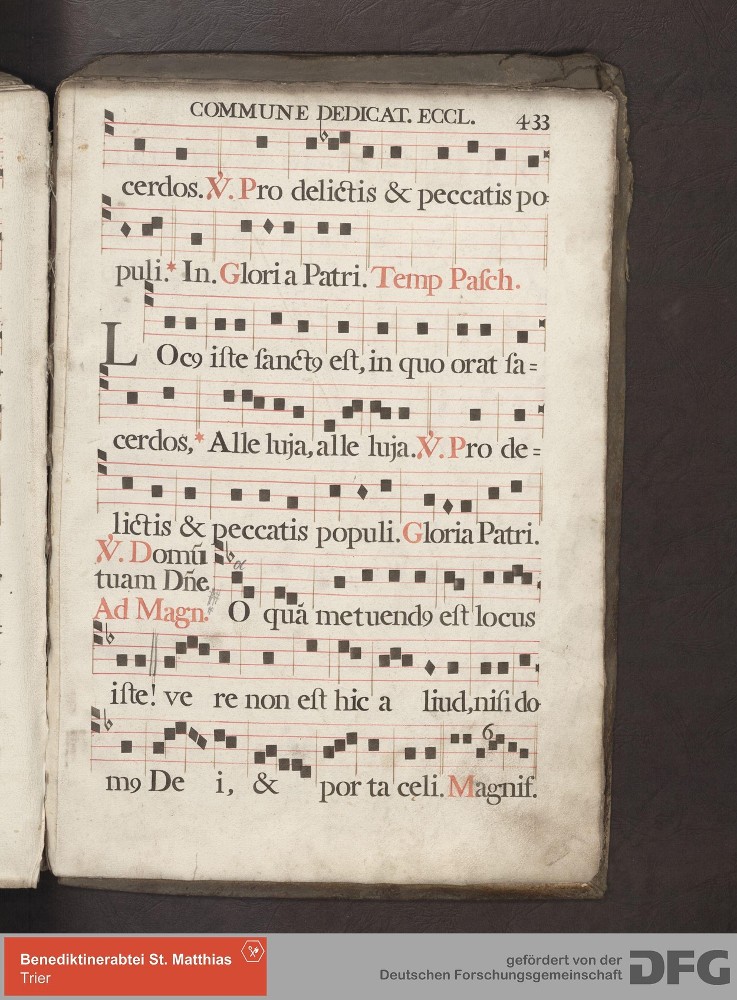 COMMUNE DEDICAT. ECCL. 433
cerdos. ℣. Pro delictis & peccatis po-
puli.* In. Gloria Patri. Temp Paſch.
LOcꝯ iſte ſanctꝯ eſt, in quo orat ſa=
cerdos,* Alle luja, alle luja. ℣. Pro de=
lictis & peccatis populi. Gloria Patri.
℣. Domū
tuam Dñe
Ad Magn. O quā metuendꝯ eſt locus
iſte! ve re non eſt hic a liud, niſi do-
mꝯ De i, & por ta celi. Magnif.
6
Benediktinerabtei St. Matthias
Trier
gefördert von der
Deutschen Forschungsgemeinschaft
DFG